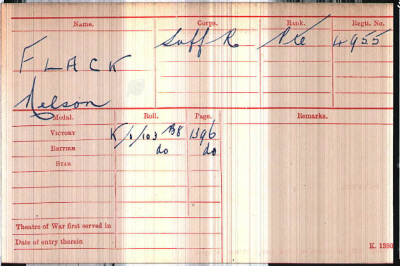 Name. Corps. Rank. Regtl. No.
FLACK Suff R Pte 4955
Nelson
Medal. Roll. Page. Remarks.
VICTORY K/1/103 B8 1396
BRITISH do do
STAR
Theatre of War first served in
Date of entry therein K. 1380